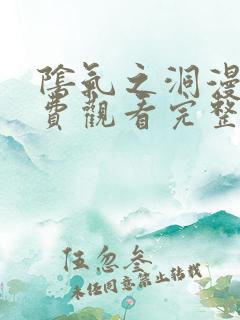 陰氣之洞漫
費觀看完整
伍忽叁
未经同意禁止转载